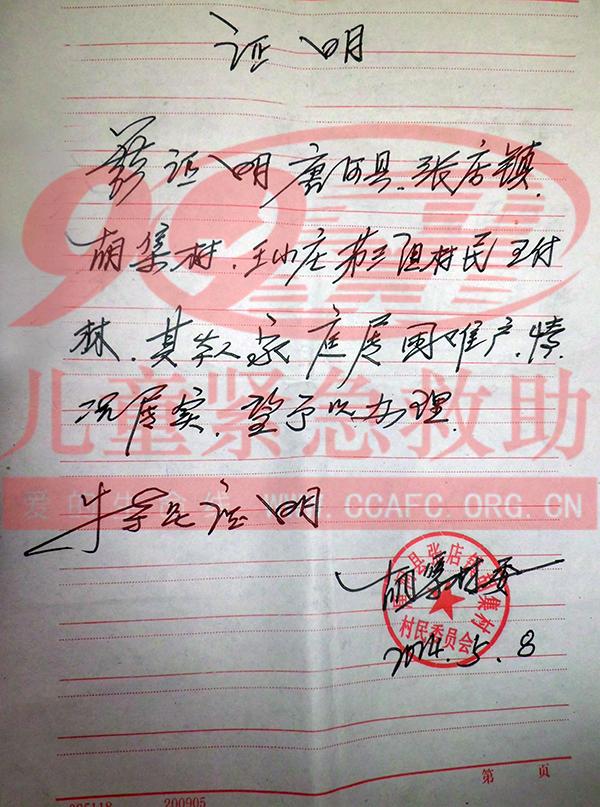 证明
兹证明唐河县.张店镇.
胡集村.王小庄第三组村民王付
林.其本人家庭属困难户.情
况属实.望予以办理.
特此证明
胡集村委
2014.5.8
县张店镇胡集村
村民委员会
99
儿童紧急救助
爱的生命线 WWW.CCAFC.ORG.CN
第 页
200905